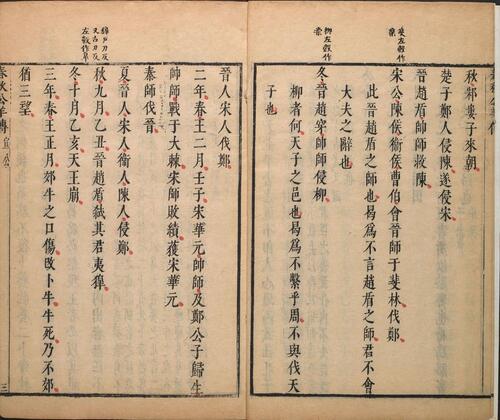 秋邾婁子來朝
楚子鄭人侵陳遂侵宋
晉趙盾帥師救陳
斐左穀作棐
宋公陳侯衞侯曹伯會晉師于斐林伐鄭
此晉趙盾之師也曷爲不言趙盾之師君不會
大夫之辭也
冬晉趙穿帥師侵柳
柳左穀作崇
柳者何天子之邑也曷爲不繫乎周不與伐天
子也
晉人宋人伐鄭
二年春王二月壬子宋華元帥師及鄭公子歸生
帥師戰于大棘宋師敗績獲宋華元
秦師伐晉
夏晉人宋人衞人陳人侵鄭
秋九月乙丑晉趙盾弑其君夷獋
獋戶刀反
又古刀反
左穀作皋
冬十月乙亥天王崩
三年春王正月郊牛之口傷改卜牛牛死乃不郊
猶三望
春秋公羊傳 宣公
三